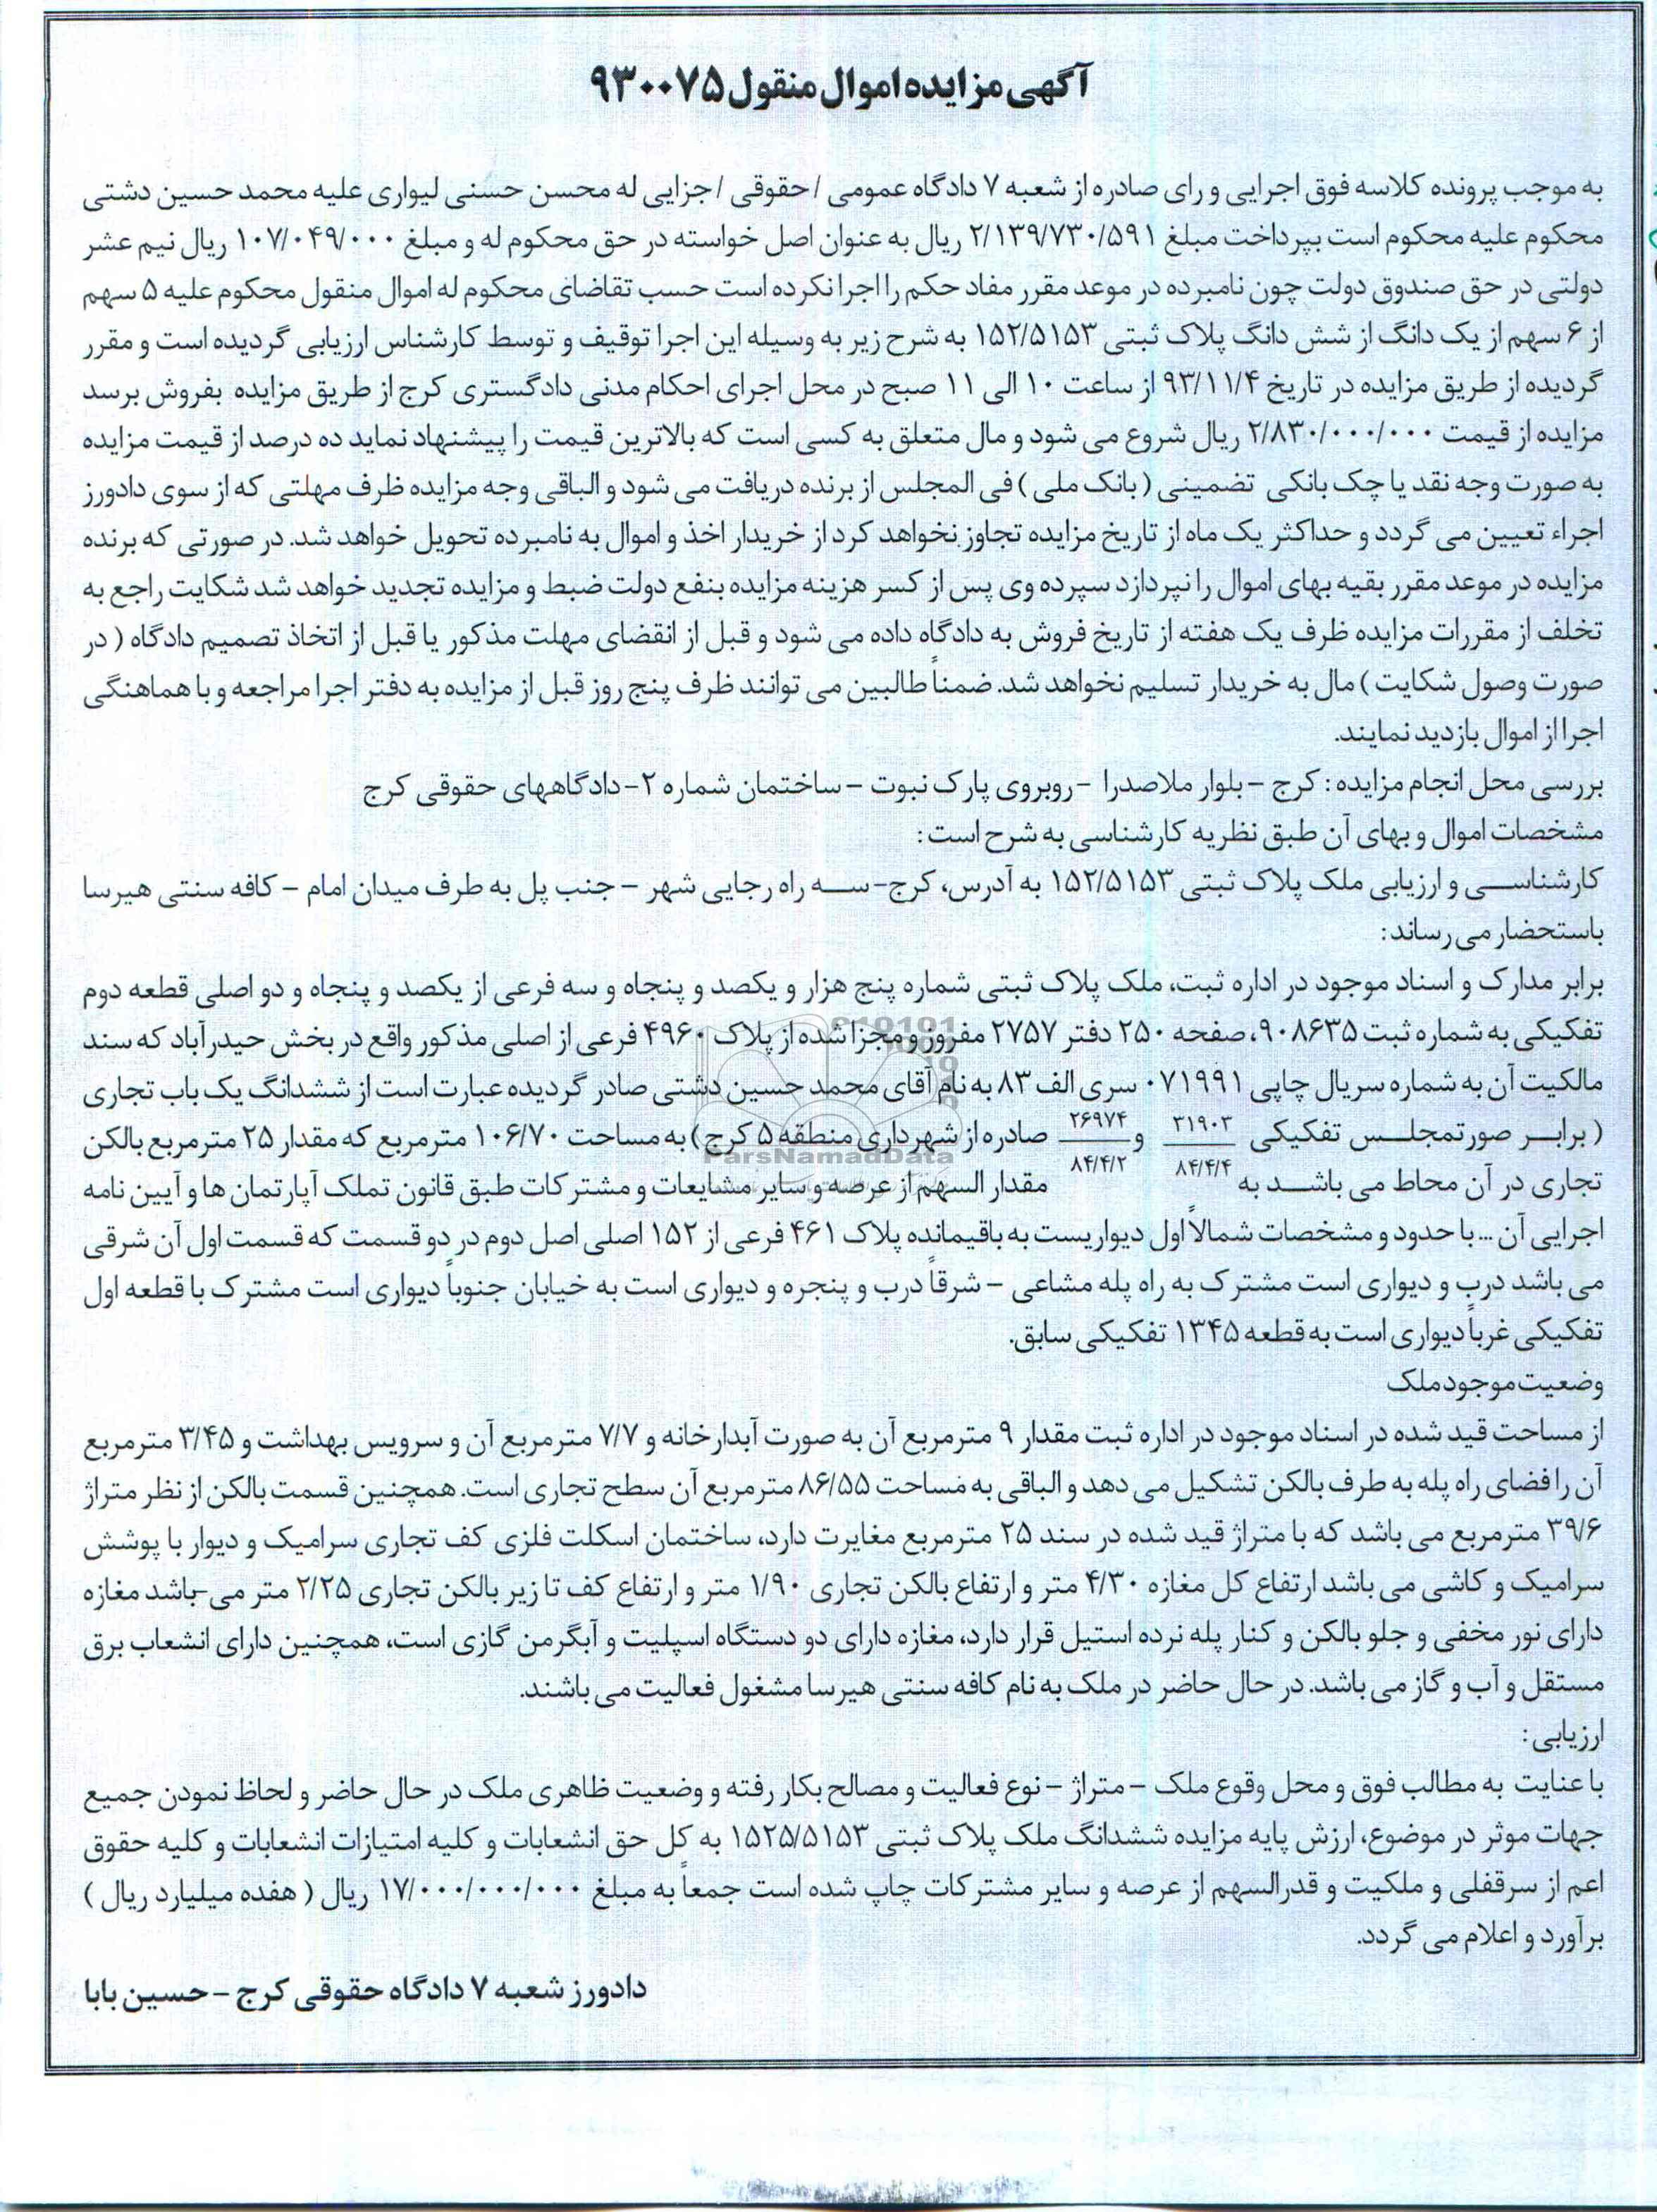 آگهی مزایده اموال منقول ۹۳۰۰۷۵
به موجب پرونده کلاسه فوق اجرایی و رای صادره از شعبه ۷ دادگاه عمومی / حقوقی / جزایی له محسن حسنی لیواری علیه محمد حسین دشتی
محکوم علیه محکوم است بپرداخت مبلغ ۲/۱۳۹/۷۳۰/۵۹۱ ریال به عنوان اصل خواسته در حق محکوم له و مبلغ ۱۰۷/۰۴۹/۰۰۰ ریال نیم عشر
دولتی در حق صندوق دولت چون نامبرده در موعد مقرر مفاد حکم را اجرا نکرده است حسب تقاضای محکوم له اموال منقول محکوم علیه ۵ سهم
از ۶ سهم از یک دانگ از شش دانگ پلاک ثبتی ۱۵۲/۵۱۵۳ به شرح زیر به وسیله این اجرا توقیف و توسط کارشناس ارزیابی گردیده است و مقرر
گردیده از طریق مزایده در تاریخ ۹۳/۱۱/۴ از ساعت ۱۰ الی ۱۱ صبح در محل اجرای احکام مدنی دادگستری کرج از طریق مزایده بفروش برسد
مزایده از قیمت ۲/۸۳۰/۰۰۰/۰۰۰ ریال شروع می شود و مال متعلق به کسی است که بالاترین قیمت را پیشنهاد نماید ده درصد از قیمت مزایده
به صورت وجه نقد یا چک بانکی تضمینی (بانک ملی) فی المجلس از برنده دریافت می شود و الباقی وجه مزایده ظرف مهلتی که از سوی دادورز
اجراء تعیین می گردد و حداکثر یک ماه از تاریخ مزایده تجاوز نخواهد کرد از خریدار اخذ و اموال به نامبرده تحویل خواهد شد. در صورتی که برنده
مزایده در موعد مقرر بقیه بهای اموال را نپردازد سپرده وی پس از کسر هزینه مزایده بنفع دولت ضبط و مزایده تجدید خواهد شد شکایت راجع به
تخلف از مقررات مزایده ظرف یک هفته از تاریخ فروش به دادگاه داده می شود و قبل از انقضای مهلت مذکور یا قبل از اتخاذ تصمیم دادگاه ( در
صورت وصول شکایت) مال به خریدار تسلیم نخواهد شد. ضمناً طالبین می توانند ظرف پنج روز قبل از مزایده به دفتر اجرا مراجعه و با هماهنگی
اجرا از اموال بازدید نمایند.
بررسی محل انجام مزایده: کرج - بلوار ملاصدرا - روبروی پارک نبوت - ساختمان شماره ۲- دادگاههای حقوقی کرج
مشخصات اموال و بهای آن طبق نظریه کارشناسی به شرح است:
کارشناسی و ارزیابی ملک پلاک ثبتی ۱۵۲/۵۱۵۳ به آدرس، کرج- سه راه رجایی شهر - جنب پل به طرف میدان امام - کافه سنتی هیرسا
باستحضار می رساند:
برابر مدارک و اسناد موجود در اداره ثبت، ملک پلاک ثبتی شماره پنج هزار و یکصد و پنجاه و سه فرعی از یکصد و پنجاه و دو اصلی قطعه دوم
تفکیکی به شماره ثبت ۹۰۸۶۳۵، صفحه ۲۵۰ دفتر ۲۷۵۷ مفروز و مجزا شده از پلاک ۴۹۶۰ فرعی از اصلی مذکور واقع در بخش حیدرآباد که سند
مالکیت آن به شماره سریال چاپی ۰۷۱۹۹۱ سری الف ۸۳ به نام آقای محمد حسین دشتی صادر گردیده عبارت است از ششدانگ یک باب تجاری
( برابر صورتمجلس تفکیکی ۳۱۹۰۳ و ۲۶۹۷۴ صادره از شهرداری منطقه ۵ کرج) به مساحت ۱۰۶/۷۰ مترمربع که مقدار ۲۵ مترمربع بالکن
تجاری در آن محاط می باشد به ۸۴/۴/۴ ۸۴/۴/۲ مقدار السهم از عرصه و سایر مشایعات و مشترکات طبق قانون تملک آپارتمان ها و آیین نامه
اجرایی آن ... با حدود و مشخصات شمالاً اول دیواریست به باقیمانده پلاک ۴۶۱ فرعی از ۱۵۲ اصلی اصل دوم در دو قسمت که قسمت اول آن شرقی
می باشد درب و دیواری است مشترک به راه پله مشاعی - شرقاً درب و پنجره و دیواری است به خیابان جنوباً دیواری است مشترک با قطعه اول
تفکیکی غرباً دیواری است به قطعه ۱۳۴۵ تفکیکی سابق.
وضعیت موجود ملک
از مساحت قید شده در اسناد موجود در اداره ثبت مقدار ۹ مترمربع آن به صورت آبدارخانه و ۷/۷ مترمربع آن و سرویس بهداشت و ۳/۴۵ مترمربع
آن را فضای راه پله به طرف بالکن تشکیل می دهد و الباقی به مساحت ۸۶/۵۵ مترمربع آن سطح تجاری است. همچنین قسمت بالکن از نظر متراژ
۳۹/۶ مترمربع می باشد که با متراژ قید شده در سند ۲۵ مترمربع مغایرت دارد، ساختمان اسکلت فلزی کف تجاری سرامیک و دیوار با پوشش
سرامیک و کاشی می باشد ارتفاع کل مغازه ۴/۳۰ متر و ارتفاع بالکن تجاری ۱/۹۰ متر و ارتفاع کف تا زیر بالکن تجاری ۲/۲۵ متر می باشد مغازه
دارای نور مخفی و جلو بالکن و کنار پله نرده استیل قرار دارد، مغازه دارای دو دستگاه اسپلیت و آبگرمن گازی است، همچنین دارای انشعاب برق
مستقل و آب و گاز می باشد. در حال حاضر در ملک به نام کافه سنتی هیرسا مشغول فعالیت می باشند.
ارزیابی:
با عنایت به مطالب فوق و محل وقوع ملک - متراژ - نوع فعالیت و مصالح بکار رفته و وضعیت ظاهری ملک در حال حاضر و لحاظ نمودن جمیع
جهات موثر در موضوع، ارزش پایه مزایده ششدانگ ملک پلاک ثبتی ۱۵۲۵/۵۱۵۳ به کل حق انشعابات و کلیه امتیازات انشعابات و کلیه حقوق
اعم از سرقفلی و ملکیت و قدرالسهم از عرصه و سایر مشترکات چاپ شده است جمعاً به مبلغ ۱۷/۰۰۰/۰۰۰/۰۰۰ ریال ( هفده میلیارد ریال )
برآورد و اعلام می گردد.
دادورز شعبه ۷ دادگاه حقوقی کرج - حسین بابا
ParsNamadData